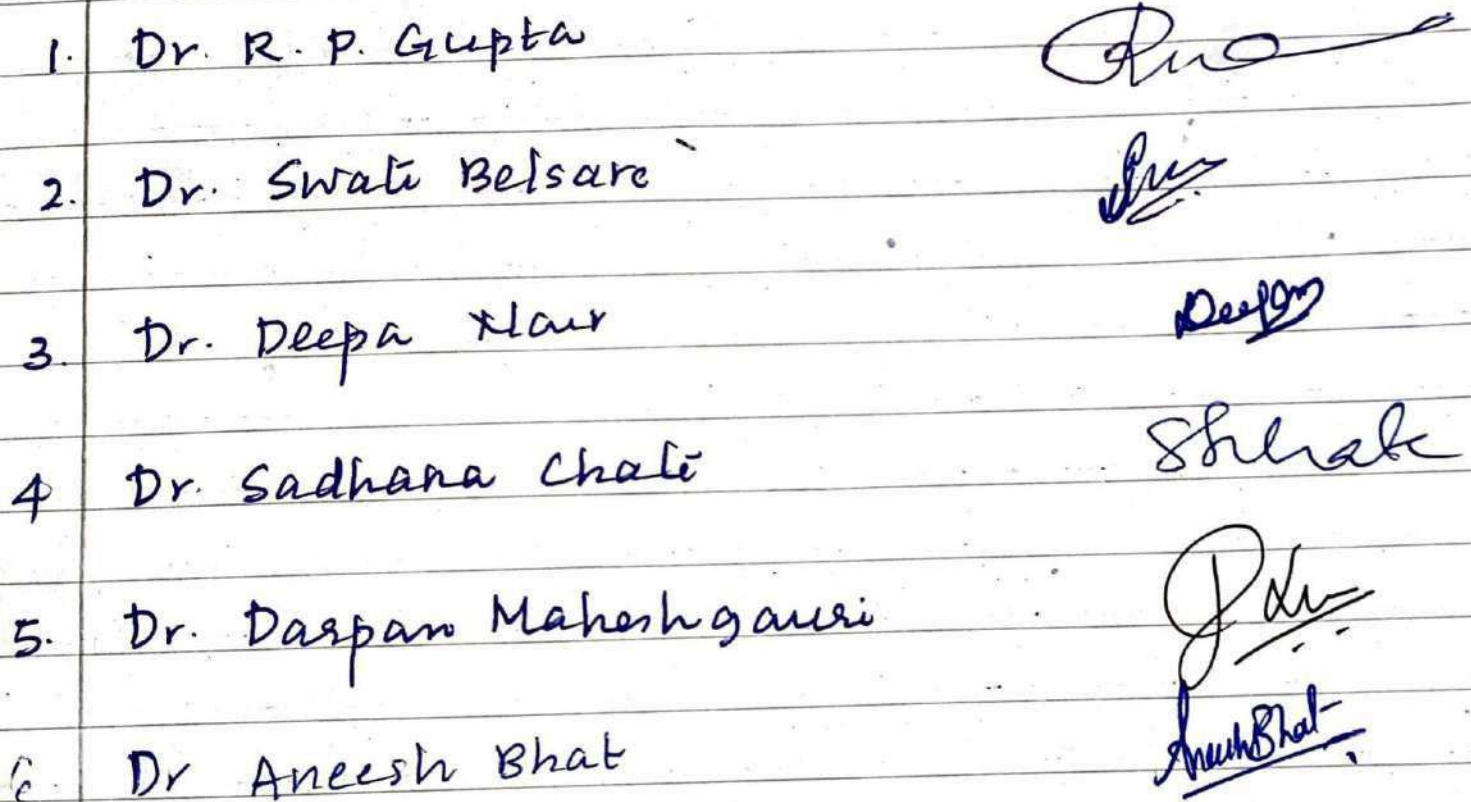 1. Dr. R. P. Gupta
2. Dr. Swati Belsare
3. Dr. Deepa Nair Deepa
4 Dr. Sadhana Chate
5. Dr. Darpan Maheshgauri
6. Dr Aneesh Bhat AneeshBhat